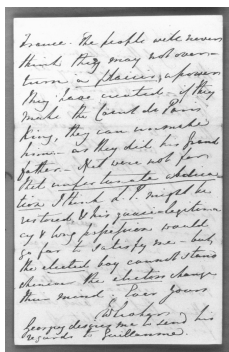 France. The people will never
think they may not over-
turn at pleasure a power
they have created - if they
make the Comte de Paris
king, they can unmake
him - as they did his Grand
father - Yet were not for
that unfortunate abdica
tion I think L. P. might be
restored, & his quasi legitim-
acy & long possession would
go far to satisfy me - but
the elected boy cannot stand
when the electors change
their mind - Ever yours
Georgy desires me to send his
regards to Guillaume.